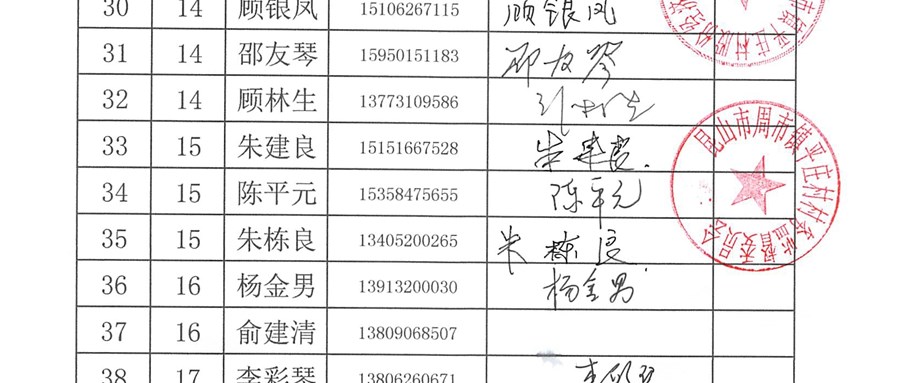 30 14 顾银凤 15106267115 顾银凤
31 14 邵友琴 15950151183 邵友琴
32 14 顾林生 13773109586
33 15 朱建良 15151667528 朱建良
34 15 陈平元 15358475655 陈平元
35 15 朱栋良 13405200265 朱栋良
36 16 杨金男 13913200030 杨金男
37 16 俞建清 13809068507
38 17 李彩琴 13806260671
昆山市周市镇平庄村村务监督委员会